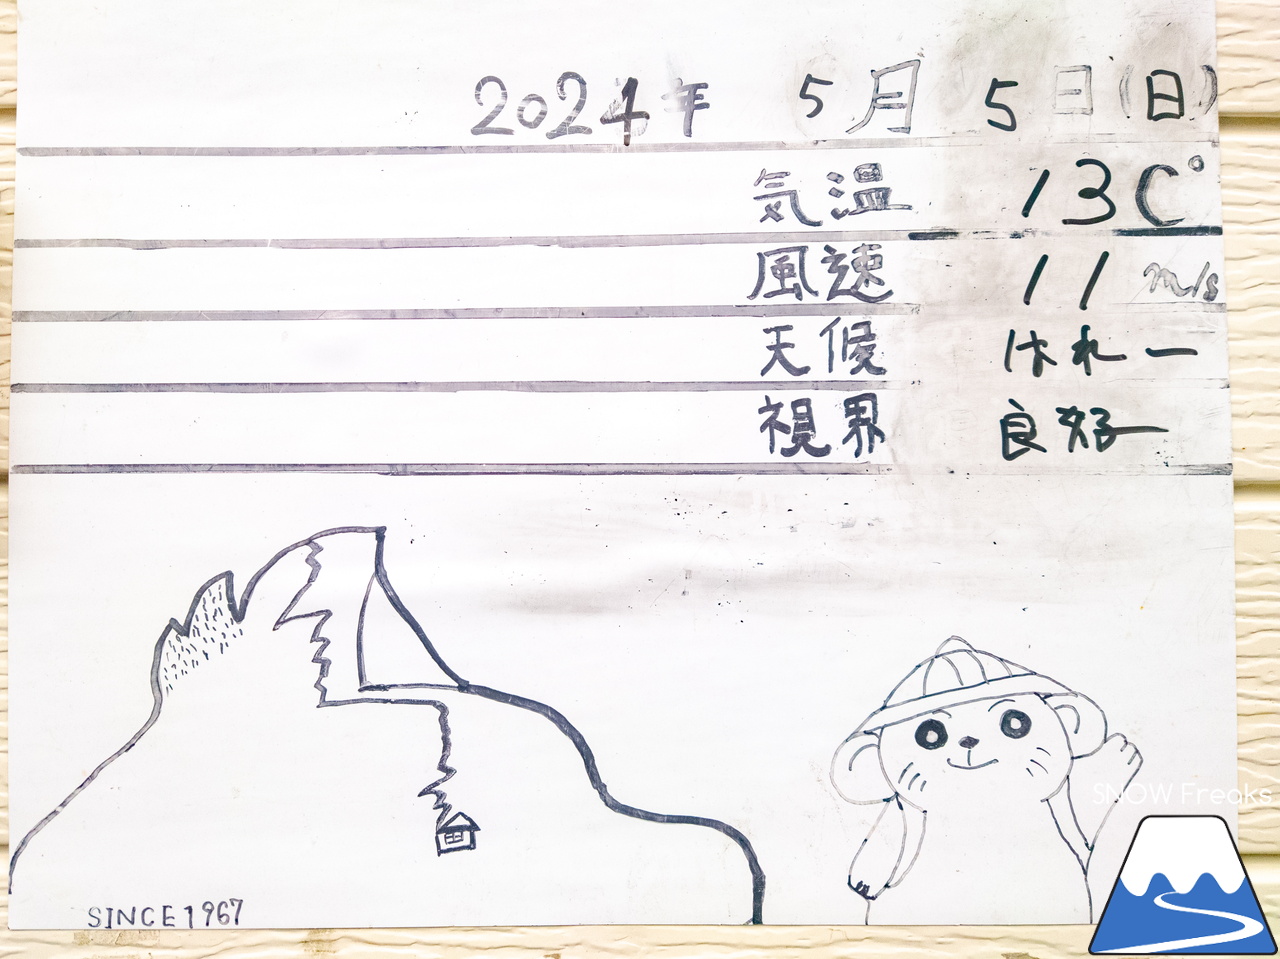 2024年 5月 5日(日)
気温 13C°
風速 11m/s
天候 はれー
視界 良好ー
SINCE1967
SNOW Freaks